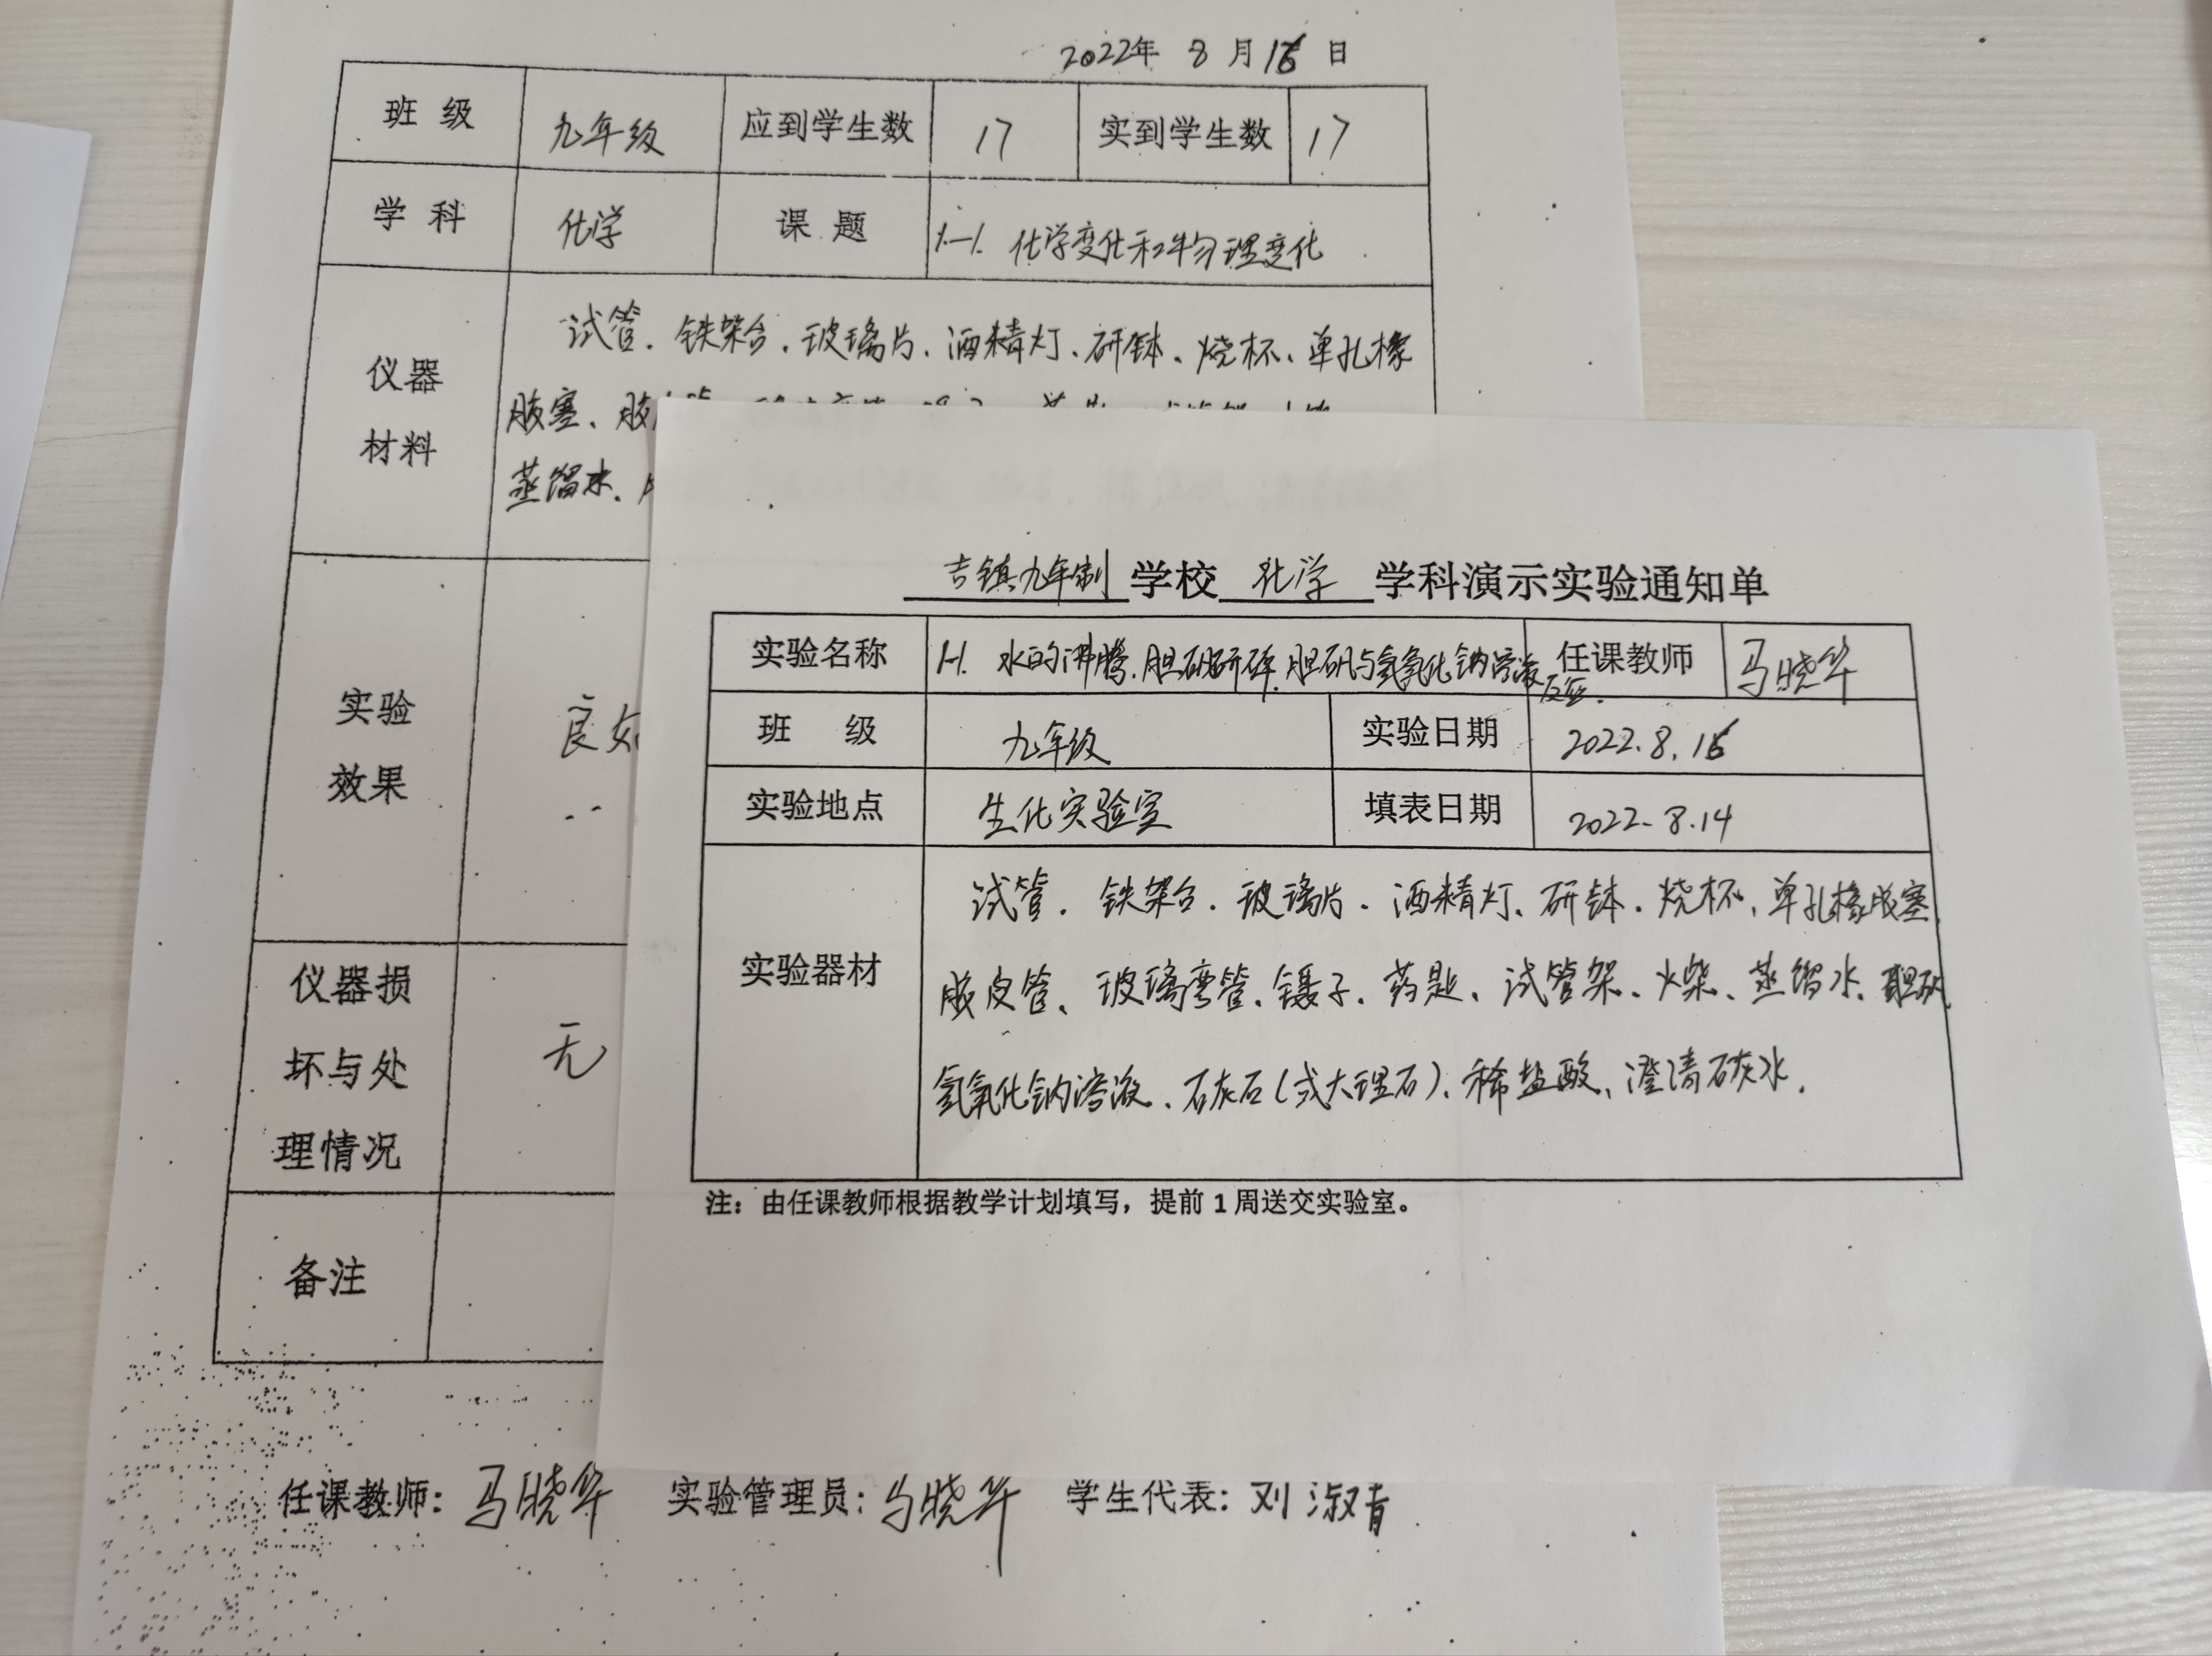 2022年 8 月 16 日
班 级 九年级 应到学生数 17 实到学生数 17
学 科 化学 课 题 1-1. 化学变化和物理变化
仪器
材料
试管、铁架台、玻璃片、酒精灯、研钵、烧杯、单孔橡
胶塞、胶
蒸馏水、
实验
效果
良好
仪器损
坏与处
理情况
无
备注
任课教师: 马晓华 实验管理员: 马晓华 学生代表: 刘淑青
吉镇九年制 学校 化学 学科演示实验通知单
实验名称 1-1. 水的沸腾、胆矾研碎、胆矾与氢氧化钠溶液反应. 任课教师 马晓华
班 级 九年级 实验日期 2022.8.16
实验地点 生化实验室 填表日期 2022.8.14
实验器材
试管、铁架台、玻璃片、酒精灯、研钵、烧杯、单孔橡胶塞、
胶皮管、玻璃弯管、镊子、药匙、试管架、火柴、蒸馏水、胆矾、
氢氧化钠溶液、石灰石(或大理石)、稀盐酸、澄清石灰水.
注：由任课教师根据教学计划填写，提前 1 周送交实验室。